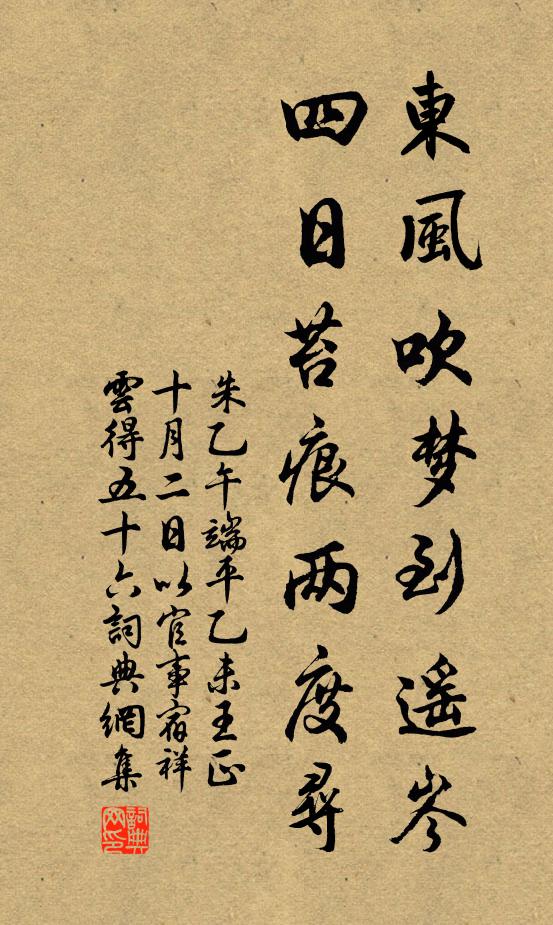 東風吹梦到遥岑
四日苔痕两度尋
朱乙午端平乙未王正
十月二日以官事宿祥
雲得五十六詞典網集
詞典
网印